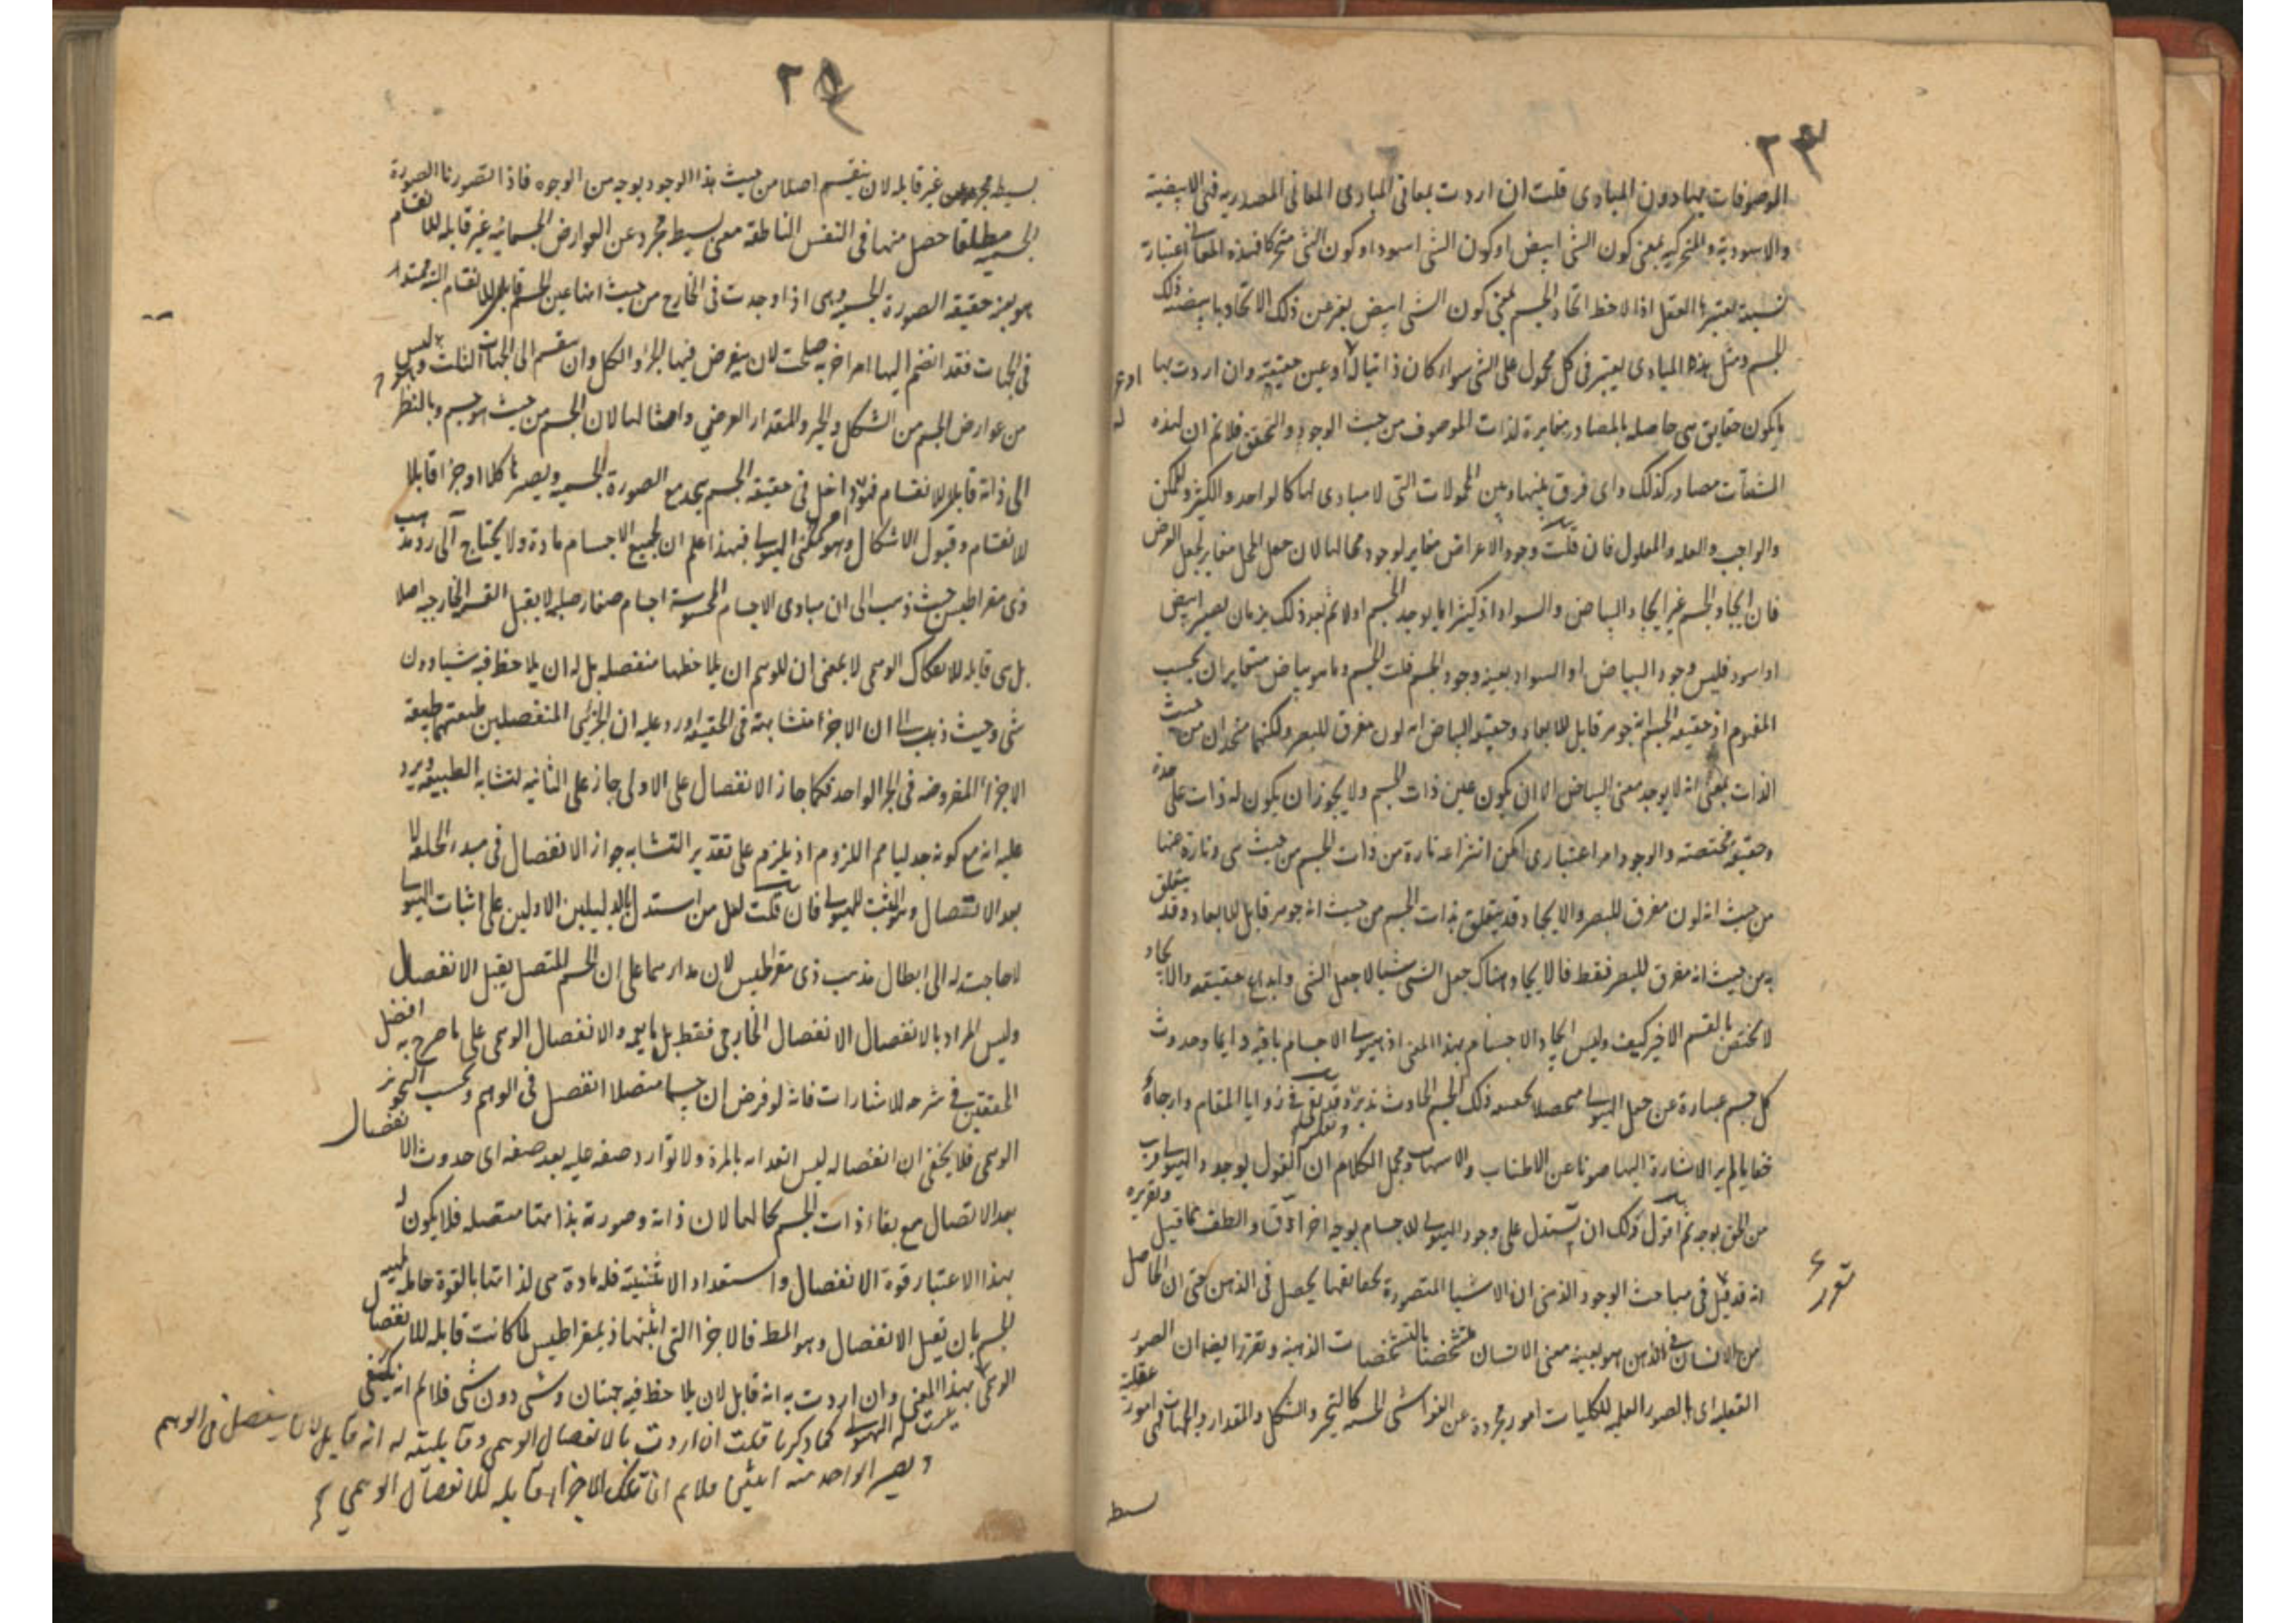 ٢٤
الموصوفات بها دون المبادى قلت ان اردت بمعانى المبادى المعانى المصدريه فهى الابيضية
والاسودية والمتحركيه بمعنى كون الشى ابيض او كون الشى اسود او كون الشى متحركا فهذه المعانى اعتبارة
نسبة يعتبرها العقل اذا لاحظ اتحاد الجسم بمعنى كون الشى ابيض يعبر عن ذلك الاتحاد بابيضية ذلك
الجسم ومثل هذه المبادى يعتبر فى كل محمول على الشى سواء كان ذاتيا له او عين حقيقته وان اردت بها
ما يكون حقايق هى حاصله بالمصادر مغايرة لذات الموصوف من حيث الوجود والتحقق فلا نم ان لهذه
المشتقات مصادر كذلك واى فرق بينها وبين المحمولات التى لا مبادى لها كالواحد والكثير والممكن
والواجب والعله والمعلول فان قلت وجود الاعراض مغاير لوجود محالها لان جعل المحل مغاير لجعل العرض
فان ايجاد الجسم غير ايجاد البياض والسواد اذ كثيرا ما يوجد الجسم اولا ثم بعد ذلك بزمان يصير ابيض
او اسود فليس وجود البياض او السواد بعينه وجود الجسم قلت الجسم وما هو بياض متغايران بحسب
المفهوم اذ حقيقة الجسم انه جوهر قابل للابعاد وحقيقة البياض انه لون مفرق للبصر ولكنهما متحدان من حيث
الذات بمعنى انه لا يوجد معنى البياض الا ان يكون عين ذات الجسم ولا يجوز ان يكون له ذات على حدة
وحقيقة مختصته والوجود امر اعتبارى امكن انتزاعه تارة من ذات الجسم من حيث هى وتارة منها
من حيث انه لون مفرق للبصر والايجاد قد يتعلق بذات الجسم من حيث انه جوهر قابل للابعاد وقد يتعلق
به من حيث انه مفرق للبصر فقط فالايجاد هناك جعل الشى شيئا لا جعل الشى وابداع حقيقته والايجاد
لا يختص بالقسم الاخير كيف وليس ايجاد الاجسام بهذا المعنى اذ هيولى الاجسام باقيه دايما وحدوث
كل جسم عبارة عن جعل الهيولى ذلك الجسم الحادث تدبر وقد بقى فى زوايا المقام وارجائه
خفايا لم ير الاشارة اليها صونا عن الاطناب والاسهاب ومجمل الكلام ان القول بوجود الهيولى قريب
من الحق بوجه ثم اقول لك ان تستدل على وجود الهيولى للاجسام بوجه اخر ادق والطف مما قيل وتقريره
انه قد قيل فى مباحث الوجود الذهنى ان الاشيا المتصورة بحقايقها يحصل فى الذهن حتى ان الحاصل
من الانسان فى الذهن هو بعينه معنى الانسان متشخصا بالتشخصات الذهنية وتقرر ايضا ان الصور
العقليه اى الصور العلميه للكليات امور مجردة عن الغواشى الحسيه كالتحيز والشكل والمقدار والجهات فهى امور عقلية
٢٥
بسيطه مجرده غير قابله لان ينقسم اصلا من حيث هذا الوجود بوجه من الوجوه فاذا تصورنا الصورة
الجسميه مطلقا حصل منها فى النفس الناطقه معنى بسيط مجرد عن العوارض الجسمانيه غير قابله للانقسام
هو بعينه حقيقة الصورة الجسميه وهى اذا وجدت فى الخارج من حيث انها عين الجسم قابل للانقسام البته ممتدا
فى الجهات فقد انضم اليها امر اخر به صلحت لان يفرض فيها الجزء والكل وان ينقسم الى الجهات الثلث وليس هو
من عوارض الجسم من الشكل والحيز والمقدار العرضى وامثالها لان الجسم من حيث هو جسم وبالنظر
الى ذاته قابلا للانقسام فهو داخل فى حقيقة الجسم يتحد مع الصورة الجسميه ويصيرها كلا او جزءا قابلا
للانقسام وقبول الاشكال وهو معنى الهيولى فبهذا علم ان لجميع الاجسام مادة ولا يحتاج الى رد مذهب
ذى مقراطيس حيث ذهب الى ان مبادى الاجسام المحسوسة اجسام صغار صلبه لا يقبل القسمه الخارجيه اصلا
بل هى قابله للانفكاك الوهمى لا بمعنى ان للوهم ان يلاحظها منفصله بل له ان يلاحظ فيه شيئا دون
شى وحيث ذهب الى ان الاجزا متشابهة فى الحقيقه اورد عليه ان الجزئين المنفصلين طبيعتهما طبيعة
الاجزاء المفروضه فى الجزء الواحد فكما جاز الانفصال على الاولى جاز على الثانيه لتشابه الطبيعه ويرد
عليه انه مع كونه جدليا نم اللزوم اذ يلزم على تقدير التشابه جواز الانفصال فى مبدء الخلقه لا
بعد الاتصال وهو المثبت للهيولى فان قلت لعل من استدل بالدليلين الاولين على اثبات الهيولى
لا حاجة له الى ابطال مذهب ذى مقراطيس لان مدارهما على ان الجسم المتصل يقبل الانفصال
وليس المراد بالانفصال الانفصال الخارجى فقط بل ما يعمه والانفصال الوهمى على ما صرح به افضل
المحققين فى شرحه للاشارات فانه لو فرض ان جسما متصلا انفصل فى الوهم وبحسب التجويز
الوهمى فلا يخفى ان انفصاله ليس انعدامه بالمرة ولا توارد صفه عليه بعد صفه اى حدوث الانفصال
بعد الاتصال مع بقاء ذات الجسم بحالها لان ذاته وصورته بذاتها متصله فلا يكون له
بهذا الاعتبار قوة الانفصال واستعداد الاثنينية فله مادة هى لذاتها بالقوة حامله
الجسم بان يقبل الانفصال وهو المط فالاجزا التى اثبتها ذيمقراطيس لما كانت قابله للانفصال
الوهمى بهذا المعنى وان اردت به انه قابل لان يلاحظ فيه جهتان وشى دون شى فلا نم انه يكفى
الهيولى كما ذكرنا قلت ان اردت بالانفصال الوهمى وقابليته له انه قابل لان ينفصل فى الوهم
ويصير الواحد منه اثنين فلا نم ان تلك الاجزاء قابله للانفصال الوهمى